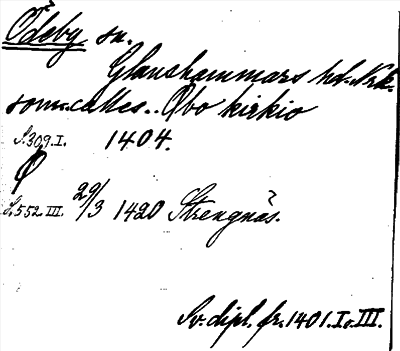 Ödeby sn.
Glanshammars hd. Nrk.
som callas.. Øbo kirkio
S.309.I. 1404.
Ø
S.552 III. 29/3 1420 Strengnäs.
Sv. dipl. fr. 1401. I o. III.